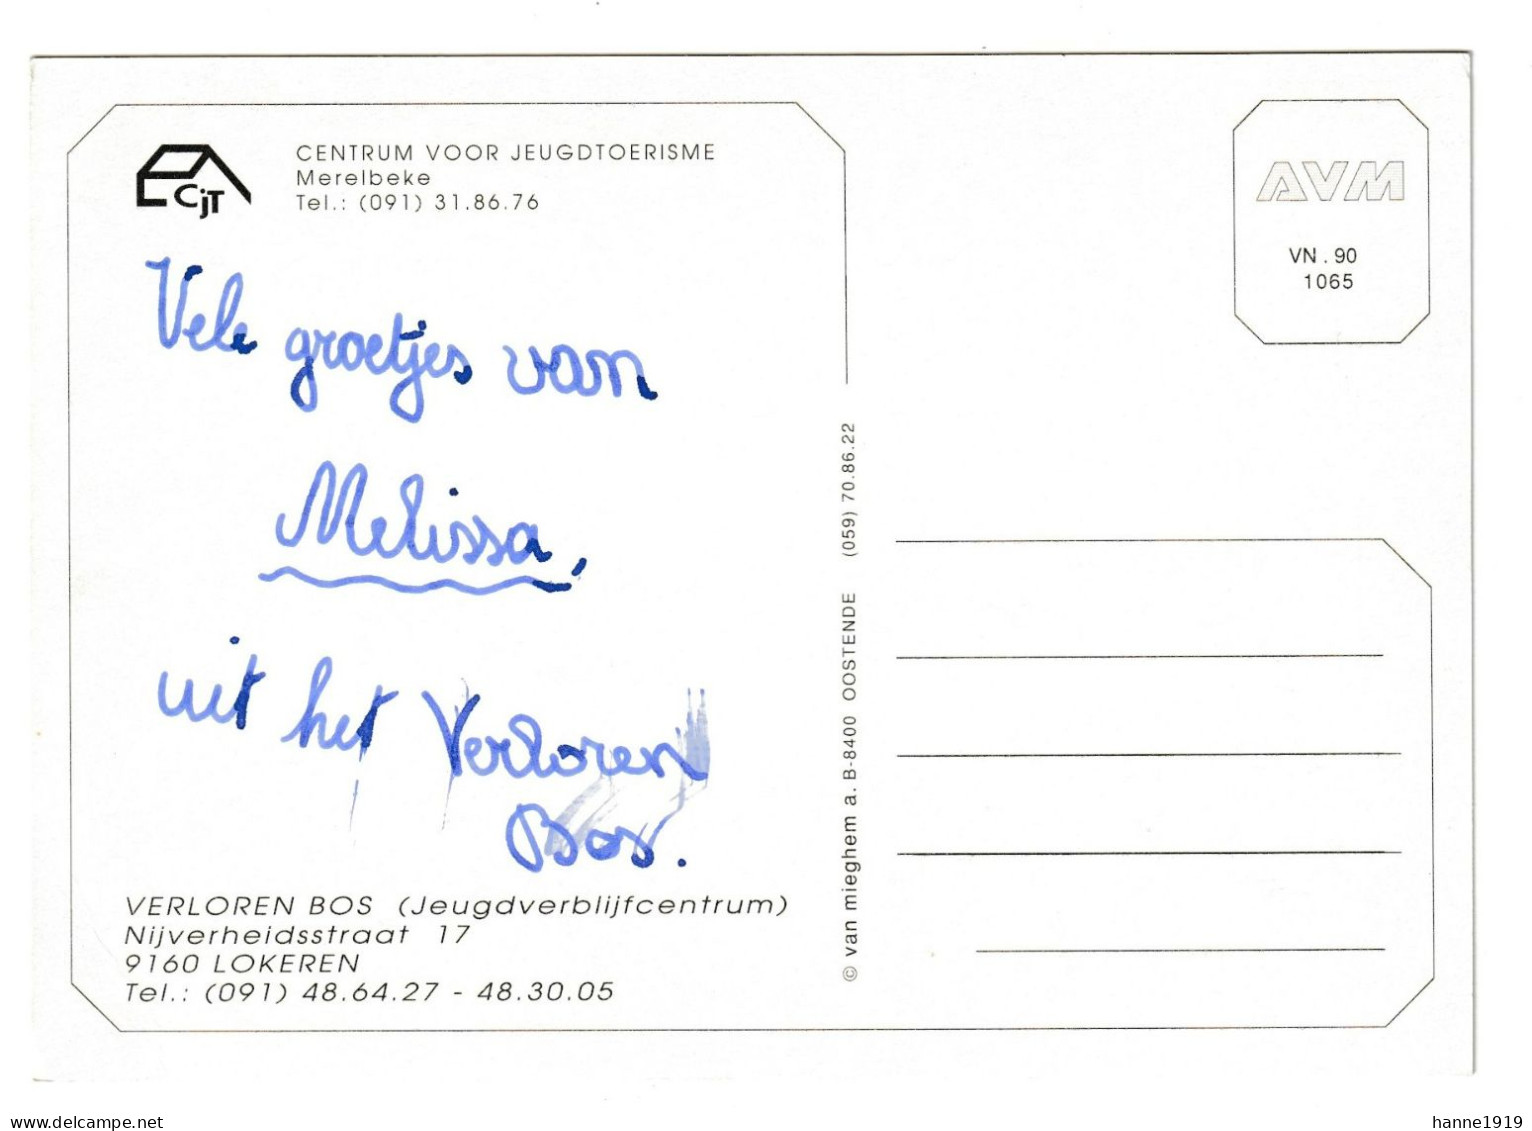 CjT
CENTRUM VOOR JEUGDTOERISME
Merelbeke
Tel.: (091) 31.86.76
Vele groetjes van
Melissa,
uit het Verloren
Bos.
VERLOREN BOS (Jeugdverblijfcentrum)
Nijverheidsstraat 17
9160 LOKEREN
Tel.: (091) 48.64.27 - 48.30.05
© van mieghem a. B-8400 OOSTENDE (059) 70.86.22
AVM
VN . 90
1065
www.delcampe.net
hanne1919